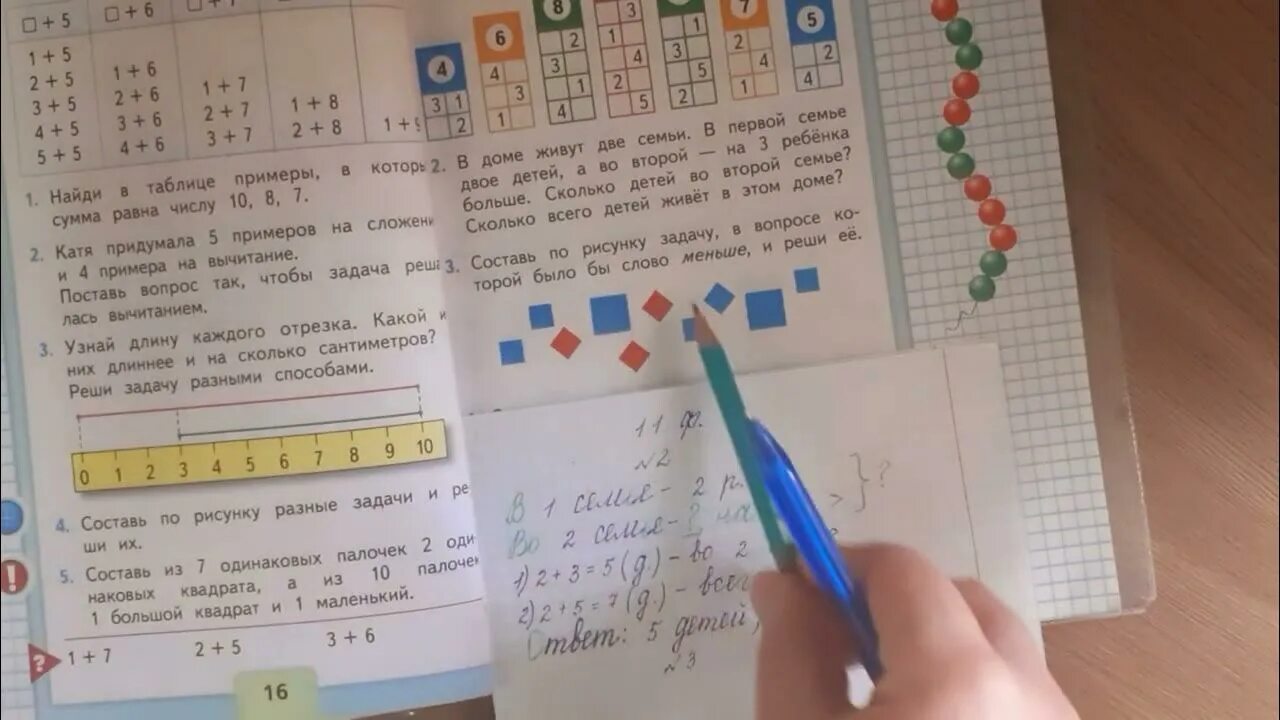 □ + 5 □ + 6
1 + 5
2 + 5 1 + 6
3 + 5 2 + 6 1 + 7
4 + 5 3 + 6 2 + 7 1 + 8
5 + 5 4 + 6 3 + 7 2 + 8 1 +
1. Найди в таблице примеры, в
сумма равна числу 10, 8, 7.
2. Катя придумала 5 примеров на
и 4 примера на вычитание.
Поставь вопрос так, чтобы задача
лась вычитанием.
3. Узнай длину каждого отрезка. Какой
них длиннее и на сколько сантиметров?
Реши задачу разными способами.
0 1 2 3 4 5 6 7 8 9 10
4. Составь по рисунку разные задачи и ре
ши их.
5. Составь из 7 одинаковых палочек 2 оди-
наковых квадрата, а из 10 палочек
1 большой квадрат и 1 маленький.
? 1 + 7 2 + 5 3 + 6
!
16
4 6 8 7 5
3 1 4 2 3 1 2 2
2 3 3 1 3 4 4
1 4 5 1
4 2 2
5
2. В доме живут две семьи. В первой семье
двое детей, а во второй — на 3 ребёнка
больше. Сколько детей во второй семье?
Сколько всего детей живёт в этом доме?
3. Составь по рисунку задачу, в вопросе ко-
торой было бы слово меньше, и реши её.
11 ф.
№2
В 1 семье - 2 р.
Во 2 семье - ? на > } ?
1) 2 + 3 = 5 (д.) - во 2
2) 2 + 5 = 7 (д.) -
Ответ: 5 детей,
№3